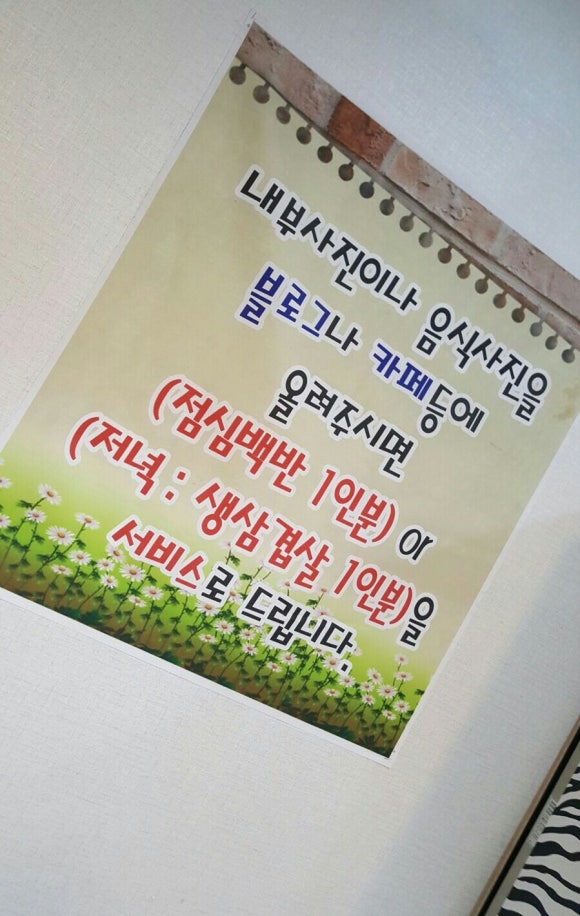 내부사진이나 음식사진을
블로그나 카페등에
올려주시면
(점심백반 1인분) or
(저녁 : 생삼겹살 1인분)을
서비스로 드립니다.